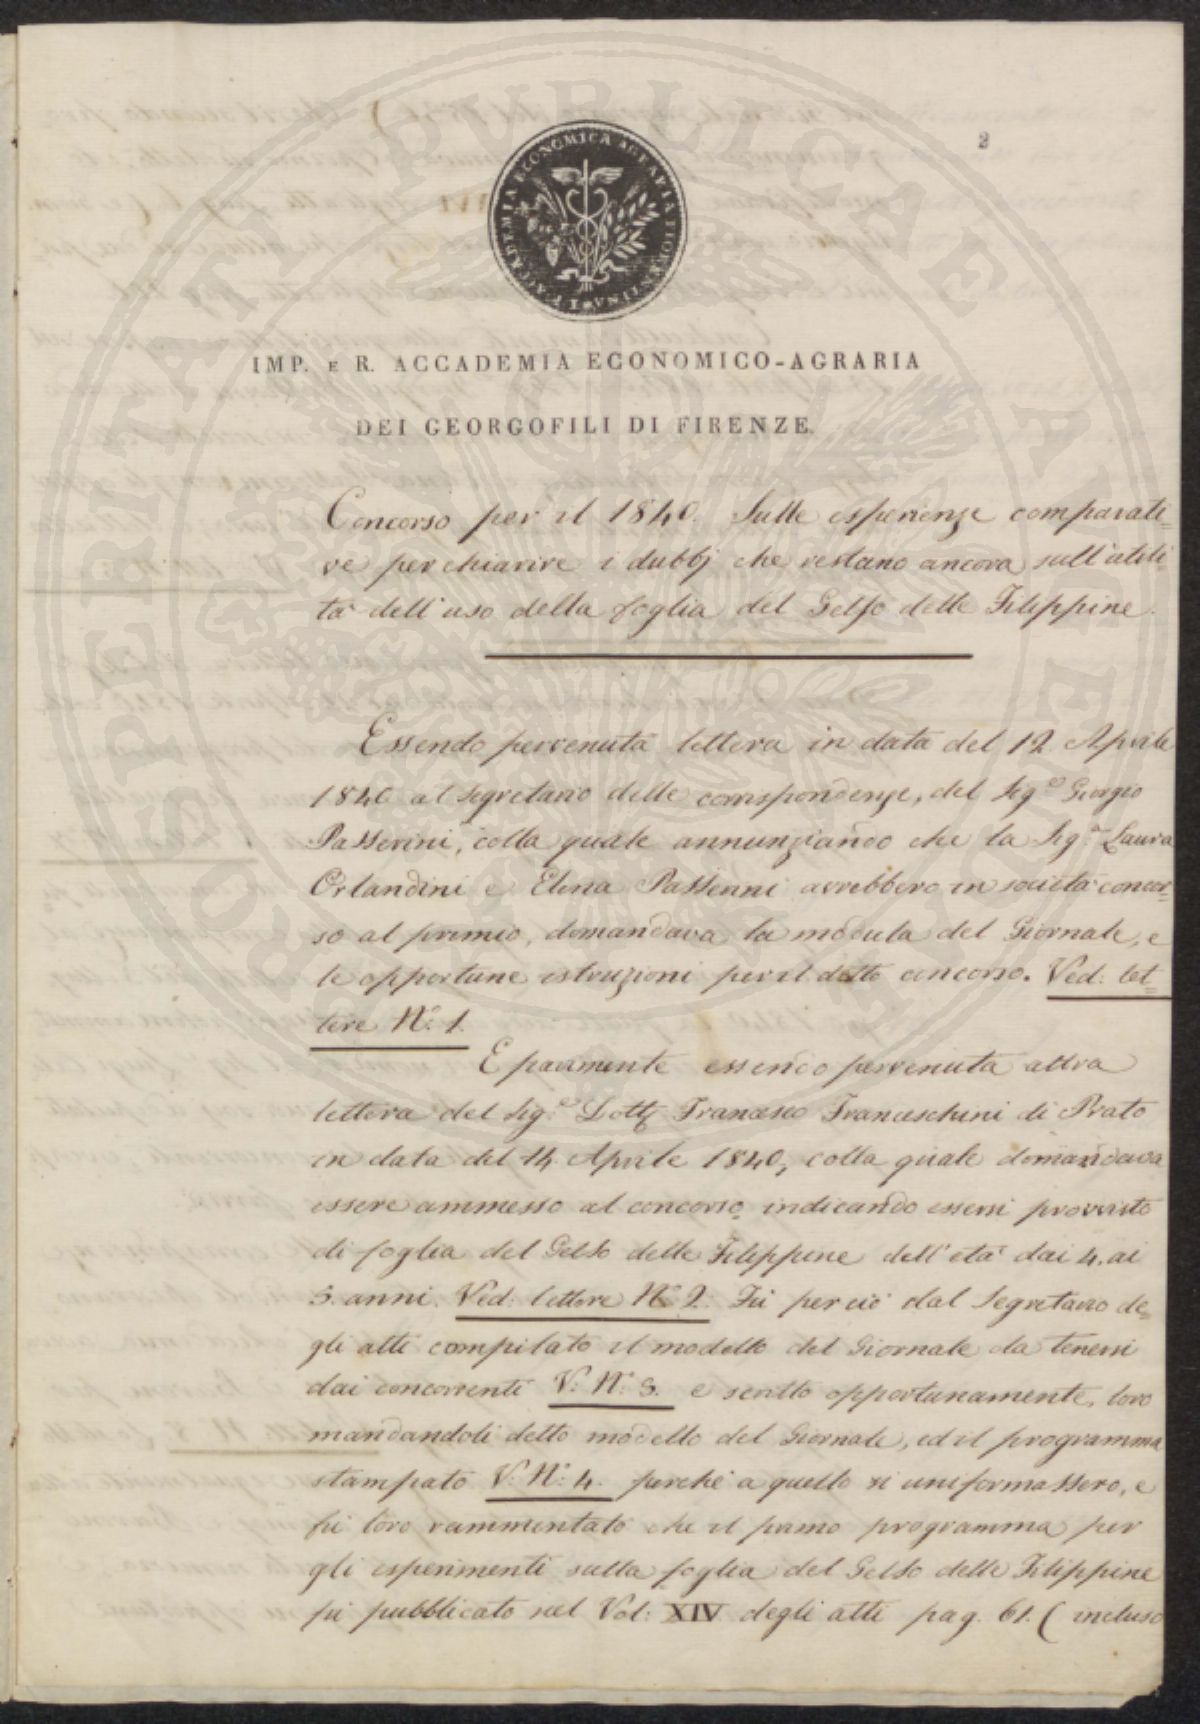 PROSPERITATI PUBLICAE AUGENDAE
3
I. E R. ACCADEMIA ECONOMICA AGRARIA FIORENTINA
IMP. E R. ACCADEMIA ECONOMICO-AGRARIA
DEI GEORGOFILI DI FIRENZE.
Concorso per il 1840. Sulle esperienze comparati=
ve per chiarire i dubbj che restano ancora sull'utili=
tà dell'uso della foglia del Gelso delle Filippine.
Essendo pervenuta lettera in data del 12. Aprile
1840 al Segretario delle corrispondenze, del Sig.e Giorgio
Passerini, colla quale annunziando che la Sig.a Laura
Orlandini e Elena Passerini avrebbero in società concor=
so al premio, domandava la modula del Giornale, e
le opportune istruzioni per il detto concorso. Ved: let=
tere N.o 1.
E parimente essendo pervenuta altra
lettera del Sig.e Dott. Francesco Franceschini di Prato
in data del 14. Aprile 1840, colla quale domandava
essere ammesso al concorso, indicando essersi provvisto
di foglia del Gelso delle Filippine dell'età dai 4. ai
5. anni. Ved: lettere N.o 2. Fù perciò dal Segretario de=
gli atti compilato il modello del Giornale da tenersi
dai concorrenti V: N.o 3. e scritto opportunamente, loro
mandandoli detto modello del Giornale, ed il programma
stampato V: N.o 4. perchè a quello si uniformassero, e
fù loro rammentato che il primo programma per
gli esperimenti sulla foglia del Gelso delle Filippine
fù pubblicato nel Vol: XIV degli atti pag. 61. ( incluso